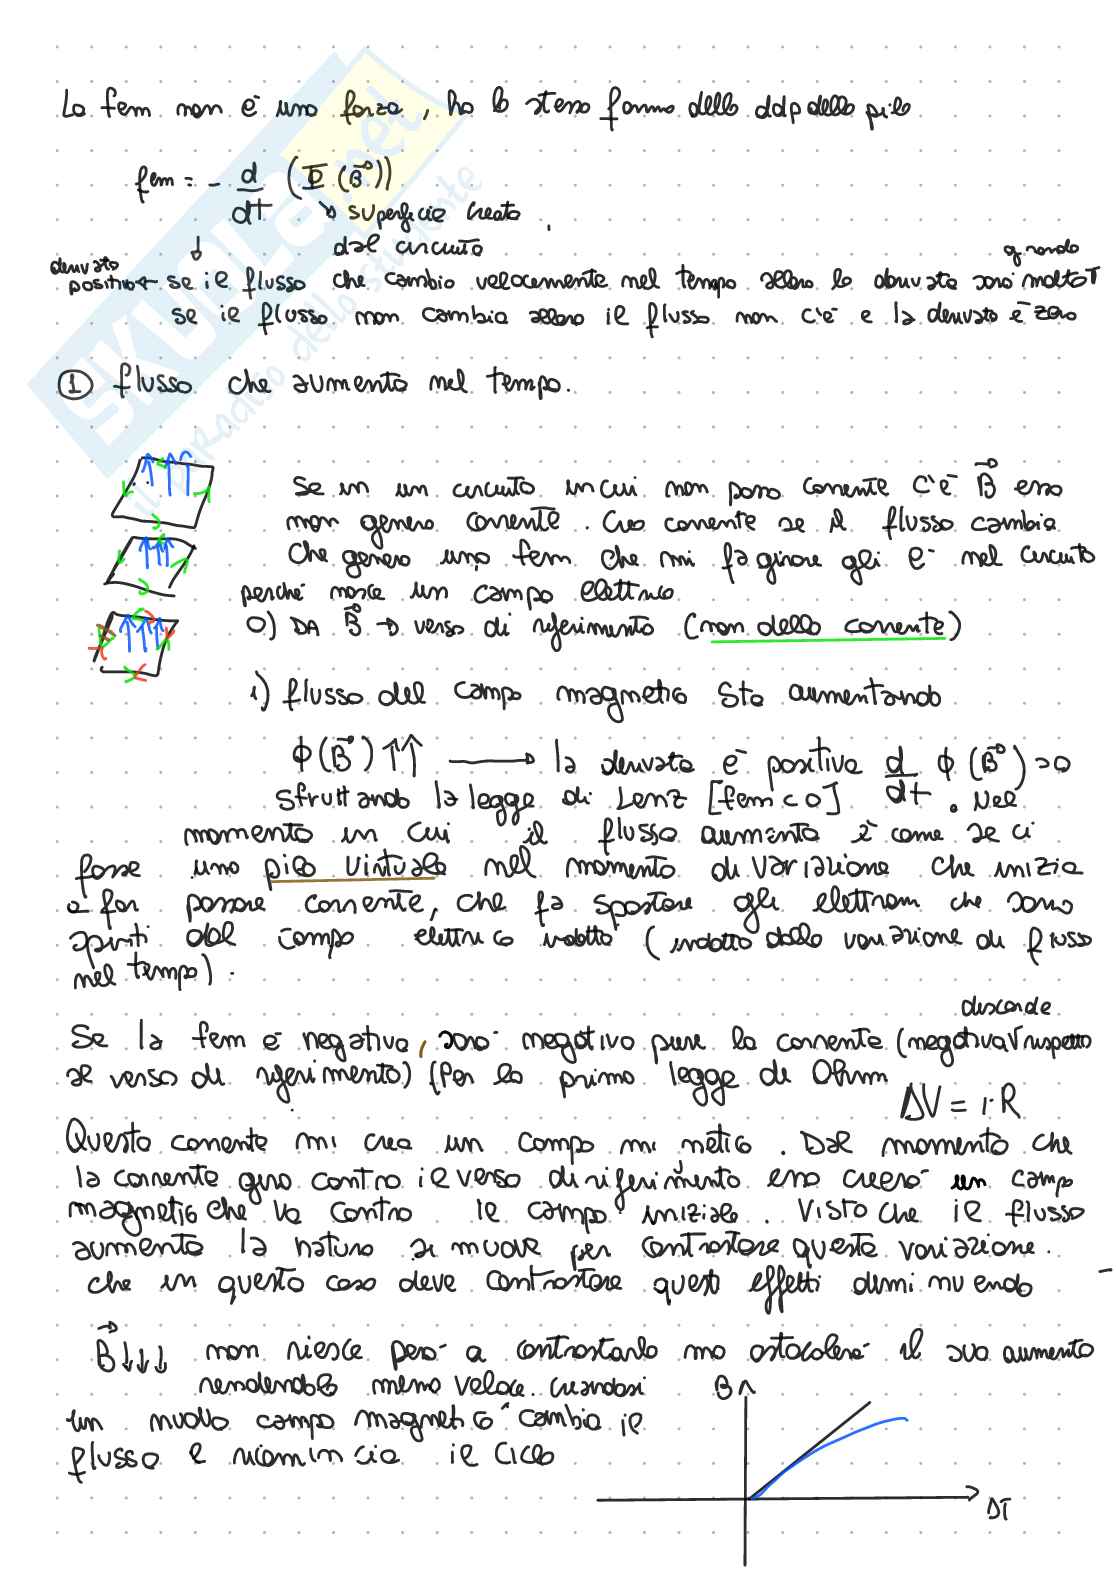 La fem non è una forza, ha la stessa forma della ddp della pila
fem = - d/dt (Φ(B⃗))
↘ superficie creata
dal circuito
derivata
positiva ← se il flusso che cambia velocemente nel tempo allora la derivata sarà molto ↑ grande
se il flusso non cambia allora il flusso non c'è e la derivata è zero
① flusso che aumenta nel tempo.
Se in un circuito in cui non passa corrente c'è B⃗ esso
non genera corrente. Creo corrente se il flusso cambia
che genera una fem che mi fa girare gli e⁻ nel circuito
perché nasce un campo elettrico
0) DA B⃗ → verso di riferimento (non della corrente)
1) flusso del campo magnetico sta aumentando
Φ(B⃗)↑↑ → la derivata è positiva d/dt Φ(B⃗)>0
sfruttando la legge di Lenz [fem<0]. Nel
momento in cui il flusso aumenta è come se ci
fosse una pila virtuale nel momento di variazione che inizia
a far passare corrente, che fa spostare gli elettroni che sono
spinti dal campo elettrico indotto (indotto dalla variazione di flusso
nel tempo).
Se la fem è negativa, sarà negativa pure la corrente (negativa √ discorde rispetto
al verso di riferimento) (Per la prima legge di Ohm
ΔV = i·R
Questa corrente mi crea un campo . Dal momento che
la corrente gira contro il verso di riferimento essa creerà un campo
magnetico che va contro il campo iniziale. Visto che il flusso
aumenta la natura si muove per contrastare questa variazione.
che in questo caso deve contrastare questi effetti diminuendo
B⃗↓↓↓ non riesce però a contrastarlo ma ostacolerà il suo aumento
rendendolo meno veloce. creandosi
un nuovo campo magnetico cambia il
flusso e ricomincia il ciclo
B
ΔT
SKUOLA.net
il paradiso dello studente